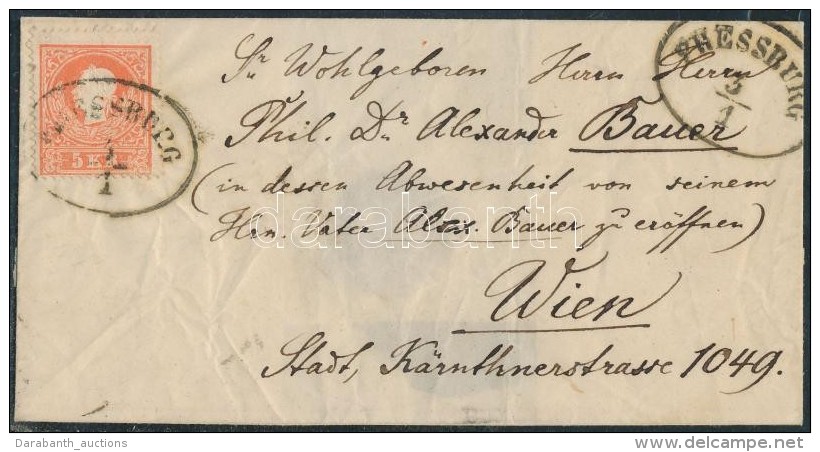 PRESSBURG
3/1
Sr Wohlgeboren Herrn Herrn
Phil. Dr Alexander Bauer
(in dessen Abwesenheit von seinem
Hrn. Vater Alex. Bauer zu eröffnen)
Wien
Stadt, Kärnthnerstrasse 1049.
5 KR
PRESSBURG
1
darabanth
Darabanth_auctions
www.delcampe.net